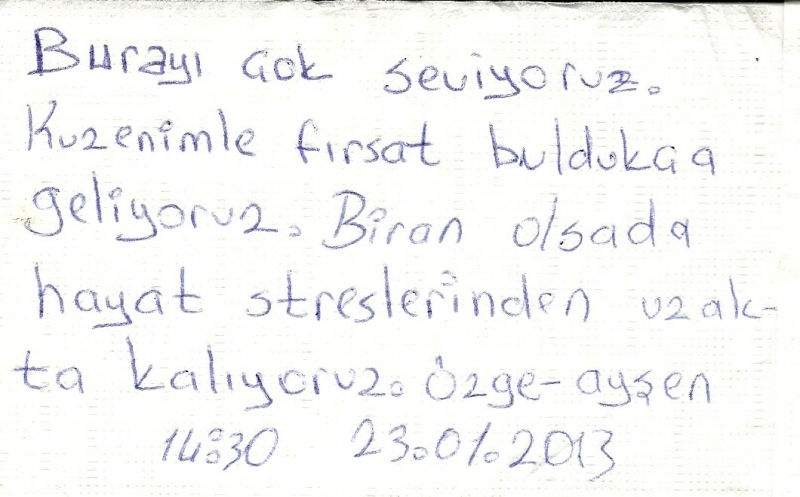 Burayı çok seviyoruz.
Kuzenimle fırsat buldukça
geliyoruz. Biran olsada
hayat streslerinden uzak-
ta kalıyoruz. özge-ayşen
14:30 23.01.2013